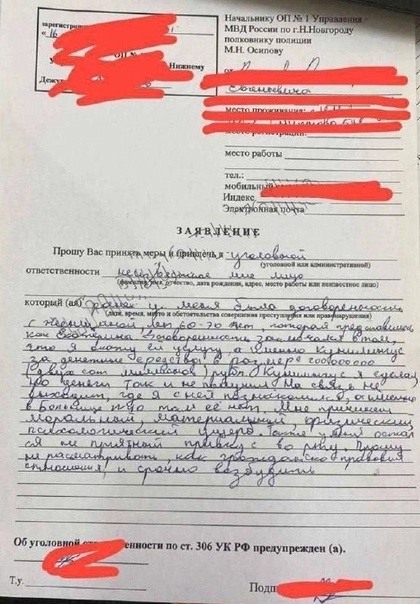 зарегистри
« 16
Нижнему
Дежу
Начальнику ОП № 1 Управления
МВД России по г.Н.Новгороду
полковнику полиции
М.Н. Осипову
от
место проживания:
место регистрации:
место работы
тел.:
мобильный
Индекс
Электронная почта
ЗАЯВЛЕНИЕ
Прошу Вас принять меры и привлечь к уголовной
(уголовной или административной)
ответственности неизвестное мне лицо
(фамилия, имя, отчество, дата рождения, адрес, место работы или неизвестное лицо)
который (ая) у меня была договоренность
(дата, время, место и обстоятельства совершения преступления или правонарушения)
с женщиной, лет 60-70 лет, которая представилась
как Екатерина. Договоренность заключалась в том,
что я окажу ей услугу, а именно Кунилингус
за денежные средства в размере
(двести миллионов) рубл. Кунилингус я сделал,
но деньги так и не получил. На связь не
выходит, где я с ней познакомился, а именно
в больнице № 40 там её нет. Мне причинен
моральный, материальный, физический,
психологический ущерб, остался
не приятный привкус во рту. Прошу
не рассматривать, как гражданско правовые
отношения, и срочно возбудить
Об уголовной ответственности по ст. 306 УК РФ предупрежден (а).
Т.у.
Подп